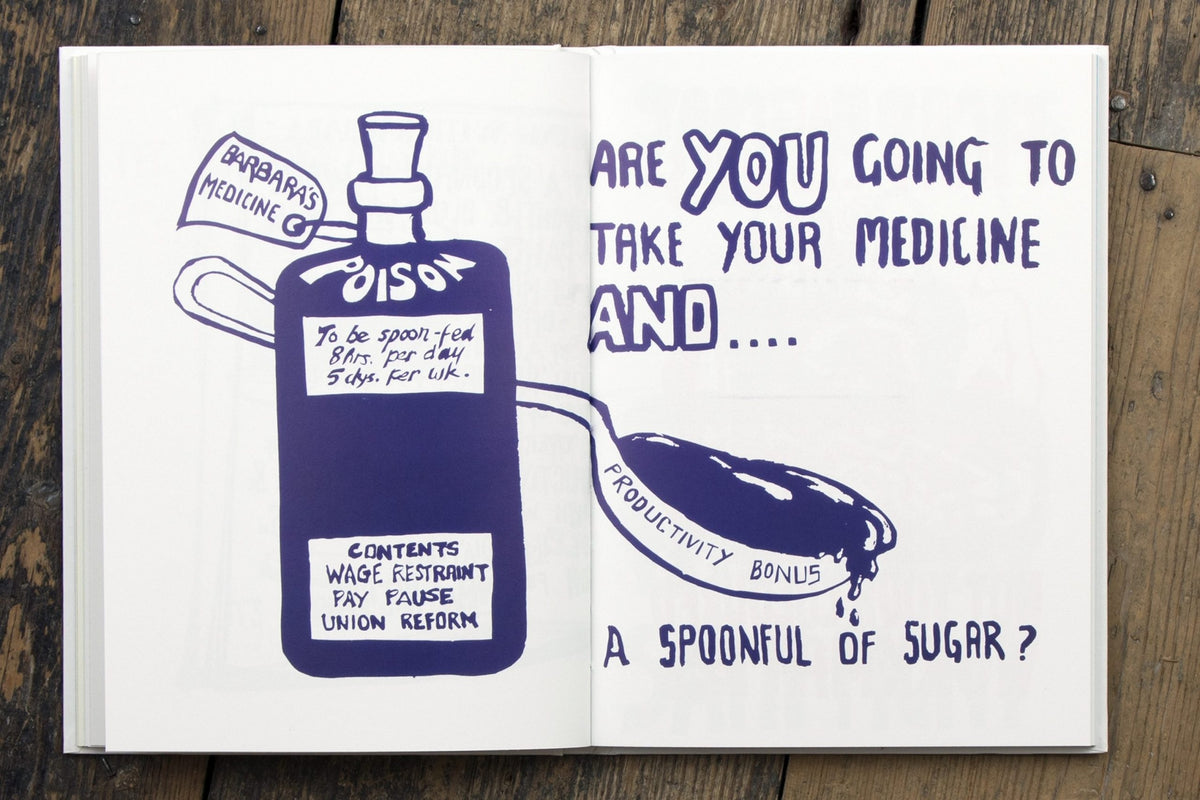 BARBARA'S
MEDICINE
POISON
To be spoon-fed
8 hrs. per day
5 dys. per wk.
CONTENTS
WAGE RESTRAINT
PAY PAUSE
UNION REFORM
ARE YOU GOING TO
TAKE YOUR MEDICINE
AND....
PRODUCTIVITY BONUS
A SPOONFUL OF SUGAR?